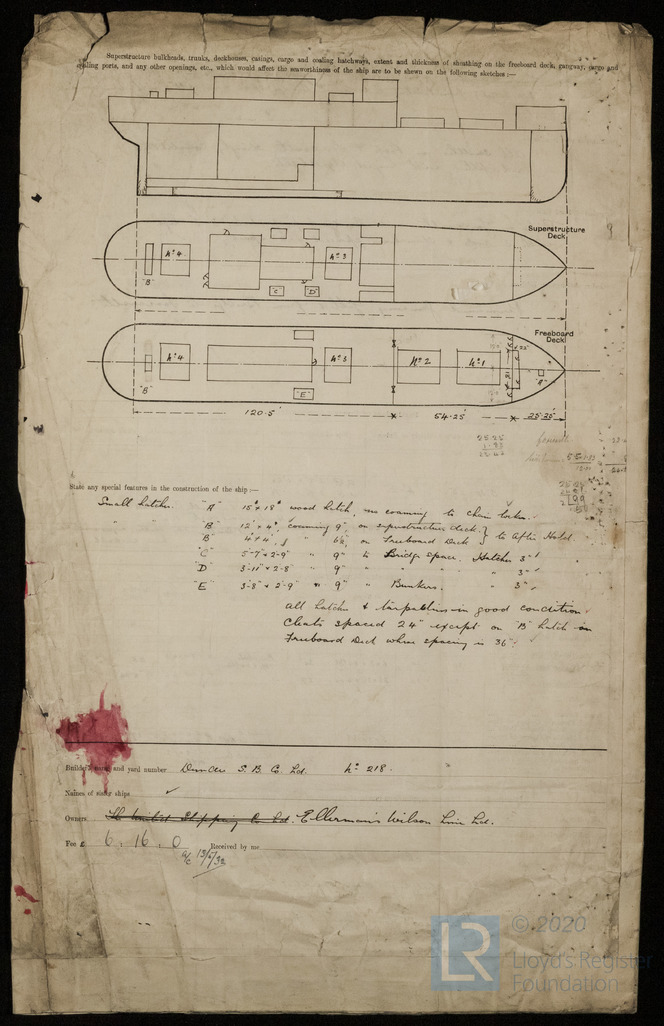 Superstructure bulkheads, trunks, deckhouses, casings, cargo and coaling hatchways, extent and thickness of sheathing on the freeboard deck, gangway, cargo and
coaling ports, and any other openings, etc., which would affect the seaworthiness of the ship are to be shewn on the following sketches :—
Superstructure
Deck
No 4
No 3
"B"
"C"
"D"
Freeboard
Deck
No 4
No 3
No 2
No 1
"B"
"E"
"A"
120·5'
54·25'
25·25'
25·25
1·83
State any special features in the construction of the ship :—
Small hatches. "A" 15" x 18" wood hatch, no coaming to chain locker.
" "B" 12' x 4', coaming 9", on superstructure deck. } to After Hold.
"B" 4' x 4', " 6½ on Freeboard Deck
"C" 5'-7" x 2'-9" " 9" to Bridge space. Hatches 3"
"D" 3'-11" x 2'-8" " 9" " " " 3"
"E" 3'-8" x 2'-9" " 9" " Bunkers. " 3"
All hatches & tarpaulins in good condition.
Cleats spaced 24" except on "B" hatch on
Freeboard Deck where spacing is 36".
Builder's name and yard number Dundee S. B. Co. Ld. No 218.
Names of sister ships
Owners The United Shipping Co Ld Ellerman's Wilson Line Ld.
Fee £ 6 . 16 . 0 Received by me
a/c 13/6/32
© 2020
LR Lloyd's Register
Foundation